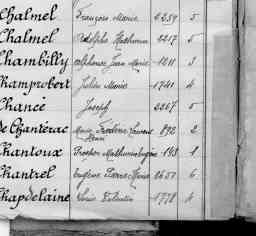 Chalmel François Marie 4259 5
Chalmel Adolphe Mathurin 4217 5
Chambilly Alphonse Jean Marie 1211 3
Champrobert Julien Marie 1741 4
Chancé Joseph 2227 5
de Chantérac Marie Frédéric Laurent 892 2
Henri
Chantoux Prosper Mathurin Eugène 193 1
Chantrel Eugène Pierre Marie 2657 6
Chapdelaine Louis Valentin 1778 4